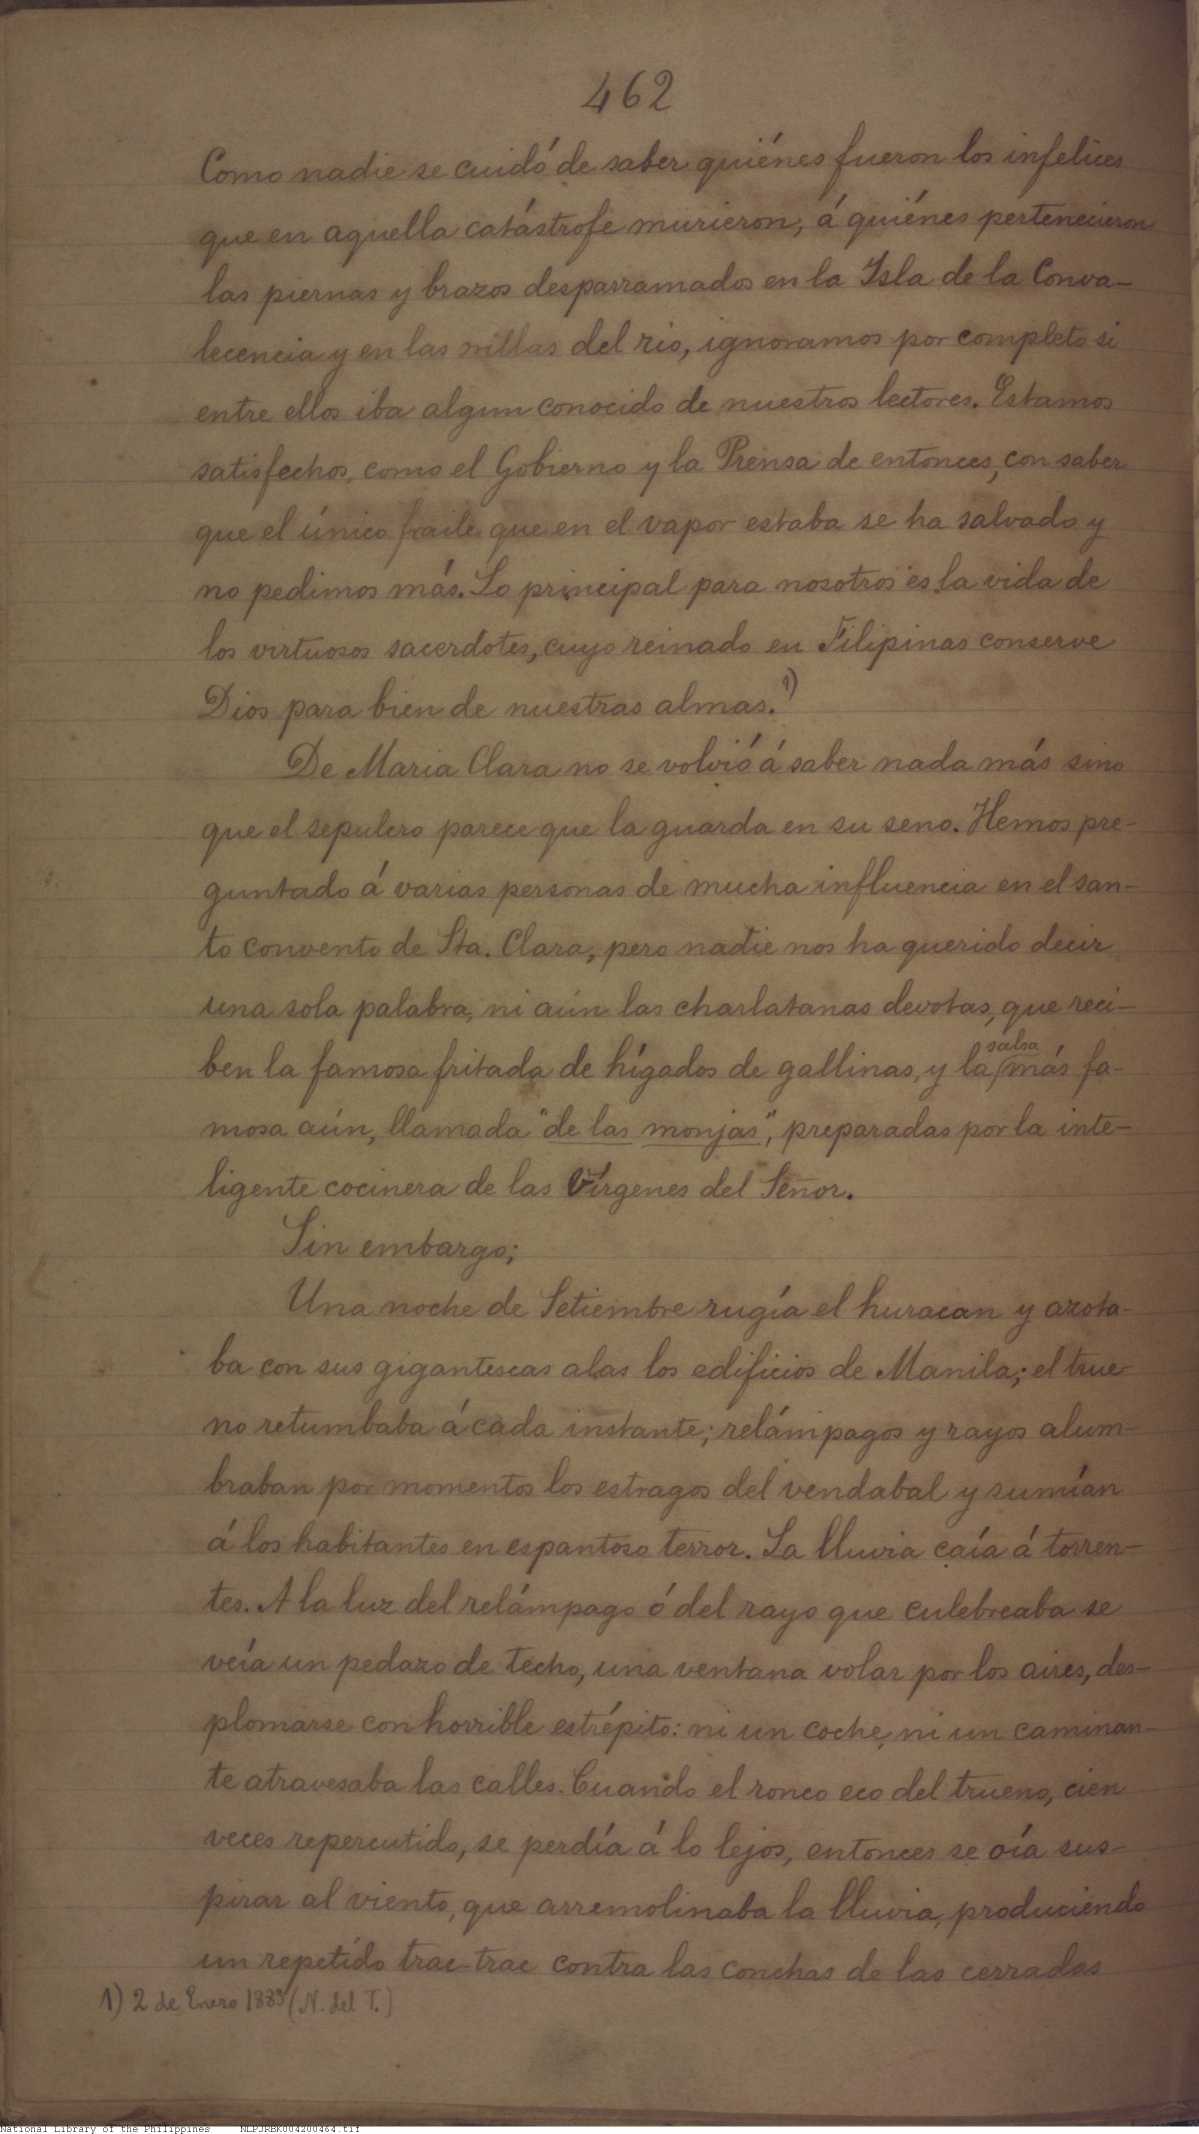 462
Como nadie se cuidó de saber quiénes fueron los infelices
que en aquella catástrofe murieron, á quiénes pertenecieron
las piernas y brazos desparramados en la Isla de la Conva-
lecencia y en las orillas del rio, ignoramos por completo si
entre ellos iba algun conocido de nuestros lectores. Estamos
satisfechos, como el Gobierno y la Prensa de entonces, con saber
que el único fraile que en el vapor estaba se ha salvado y
no pedimos más. Lo principal para nosotros es la vida de
los virtuosos sacerdotes, cuyo reinado en Filipinas conserve
Dios para bien de nuestras almas. 1)
De Maria Clara no se volvió á saber nada más sino
que el sepulcro parece que la guarda en su seno. Hemos pre-
guntado á varias personas de mucha influencia en el san-
to convento de Sta. Clara, pero nadie nos ha querido decir
una sola palabra, ni aún las charlatanas devotas, que reci-
ben la famosa fritada de hígados de gallinas, y la salsa más fa-
mosa aún, llamada "de las monjas", preparadas por la inte-
ligente cocinera de las Vírgenes del Señor.
Sin embargo;
Una noche de Setiembre rugía el huracan y azota-
ba con sus gigantescas alas los edificios de Manila; el true-
no retumbaba á cada instante; relámpagos y rayos alum-
braban por momentos los estragos del vendabal y sumían
á los habitantes en espantoso terror. La lluvia caía á torren-
tes. A la luz del relámpago ó del rayo que culebreaba se
veía un pedazo de techo, una ventana volar por los aires, des-
plomarse con horrible estrépito: ni un coche, ni un caminan-
te atravesaba las calles. Cuando el ronco eco del trueno, cien
veces repercutido, se perdía á lo lejos, entonces se oía sus-
pirar al viento, que arremolinaba la lluvia, produciendo
un repetido trac-trac contra las conchas de las cerradas
1) 2 de Enero 1883 (N. del T.)
National Library of the Philippines NLPJRBK004200464.tif